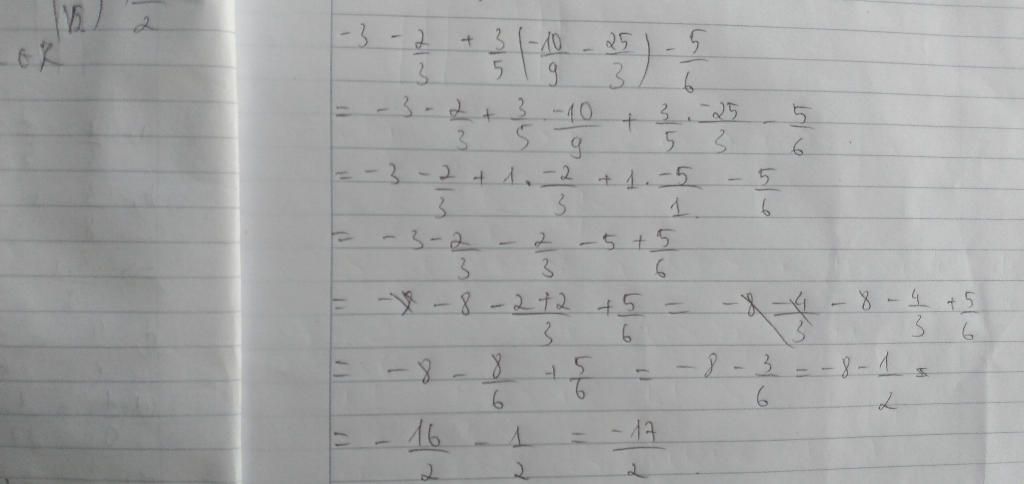 (√2) / 2
∈ R
-3 - 2/3 + 3/5 (-10/9 - 25/3) - 5/6
= -3 - 2/3 + 3/5 · -10/9 + 3/5 · -25/3 - 5/6
= -3 - 2/3 + 1 · -2/3 + 1 · -5/1 - 5/6
= -3 - 2/3 - 2/3 - 5 + 5/6
= - 8 - (2+2)/3 + 5/6 = - 8 - 4/3 - 8 - 4/3 + 5/6
= -8 - 8/6 + 5/6 = -8 - 3/6 = -8 - 1/2 =
= - 16/2 - 1/2 = -17/2